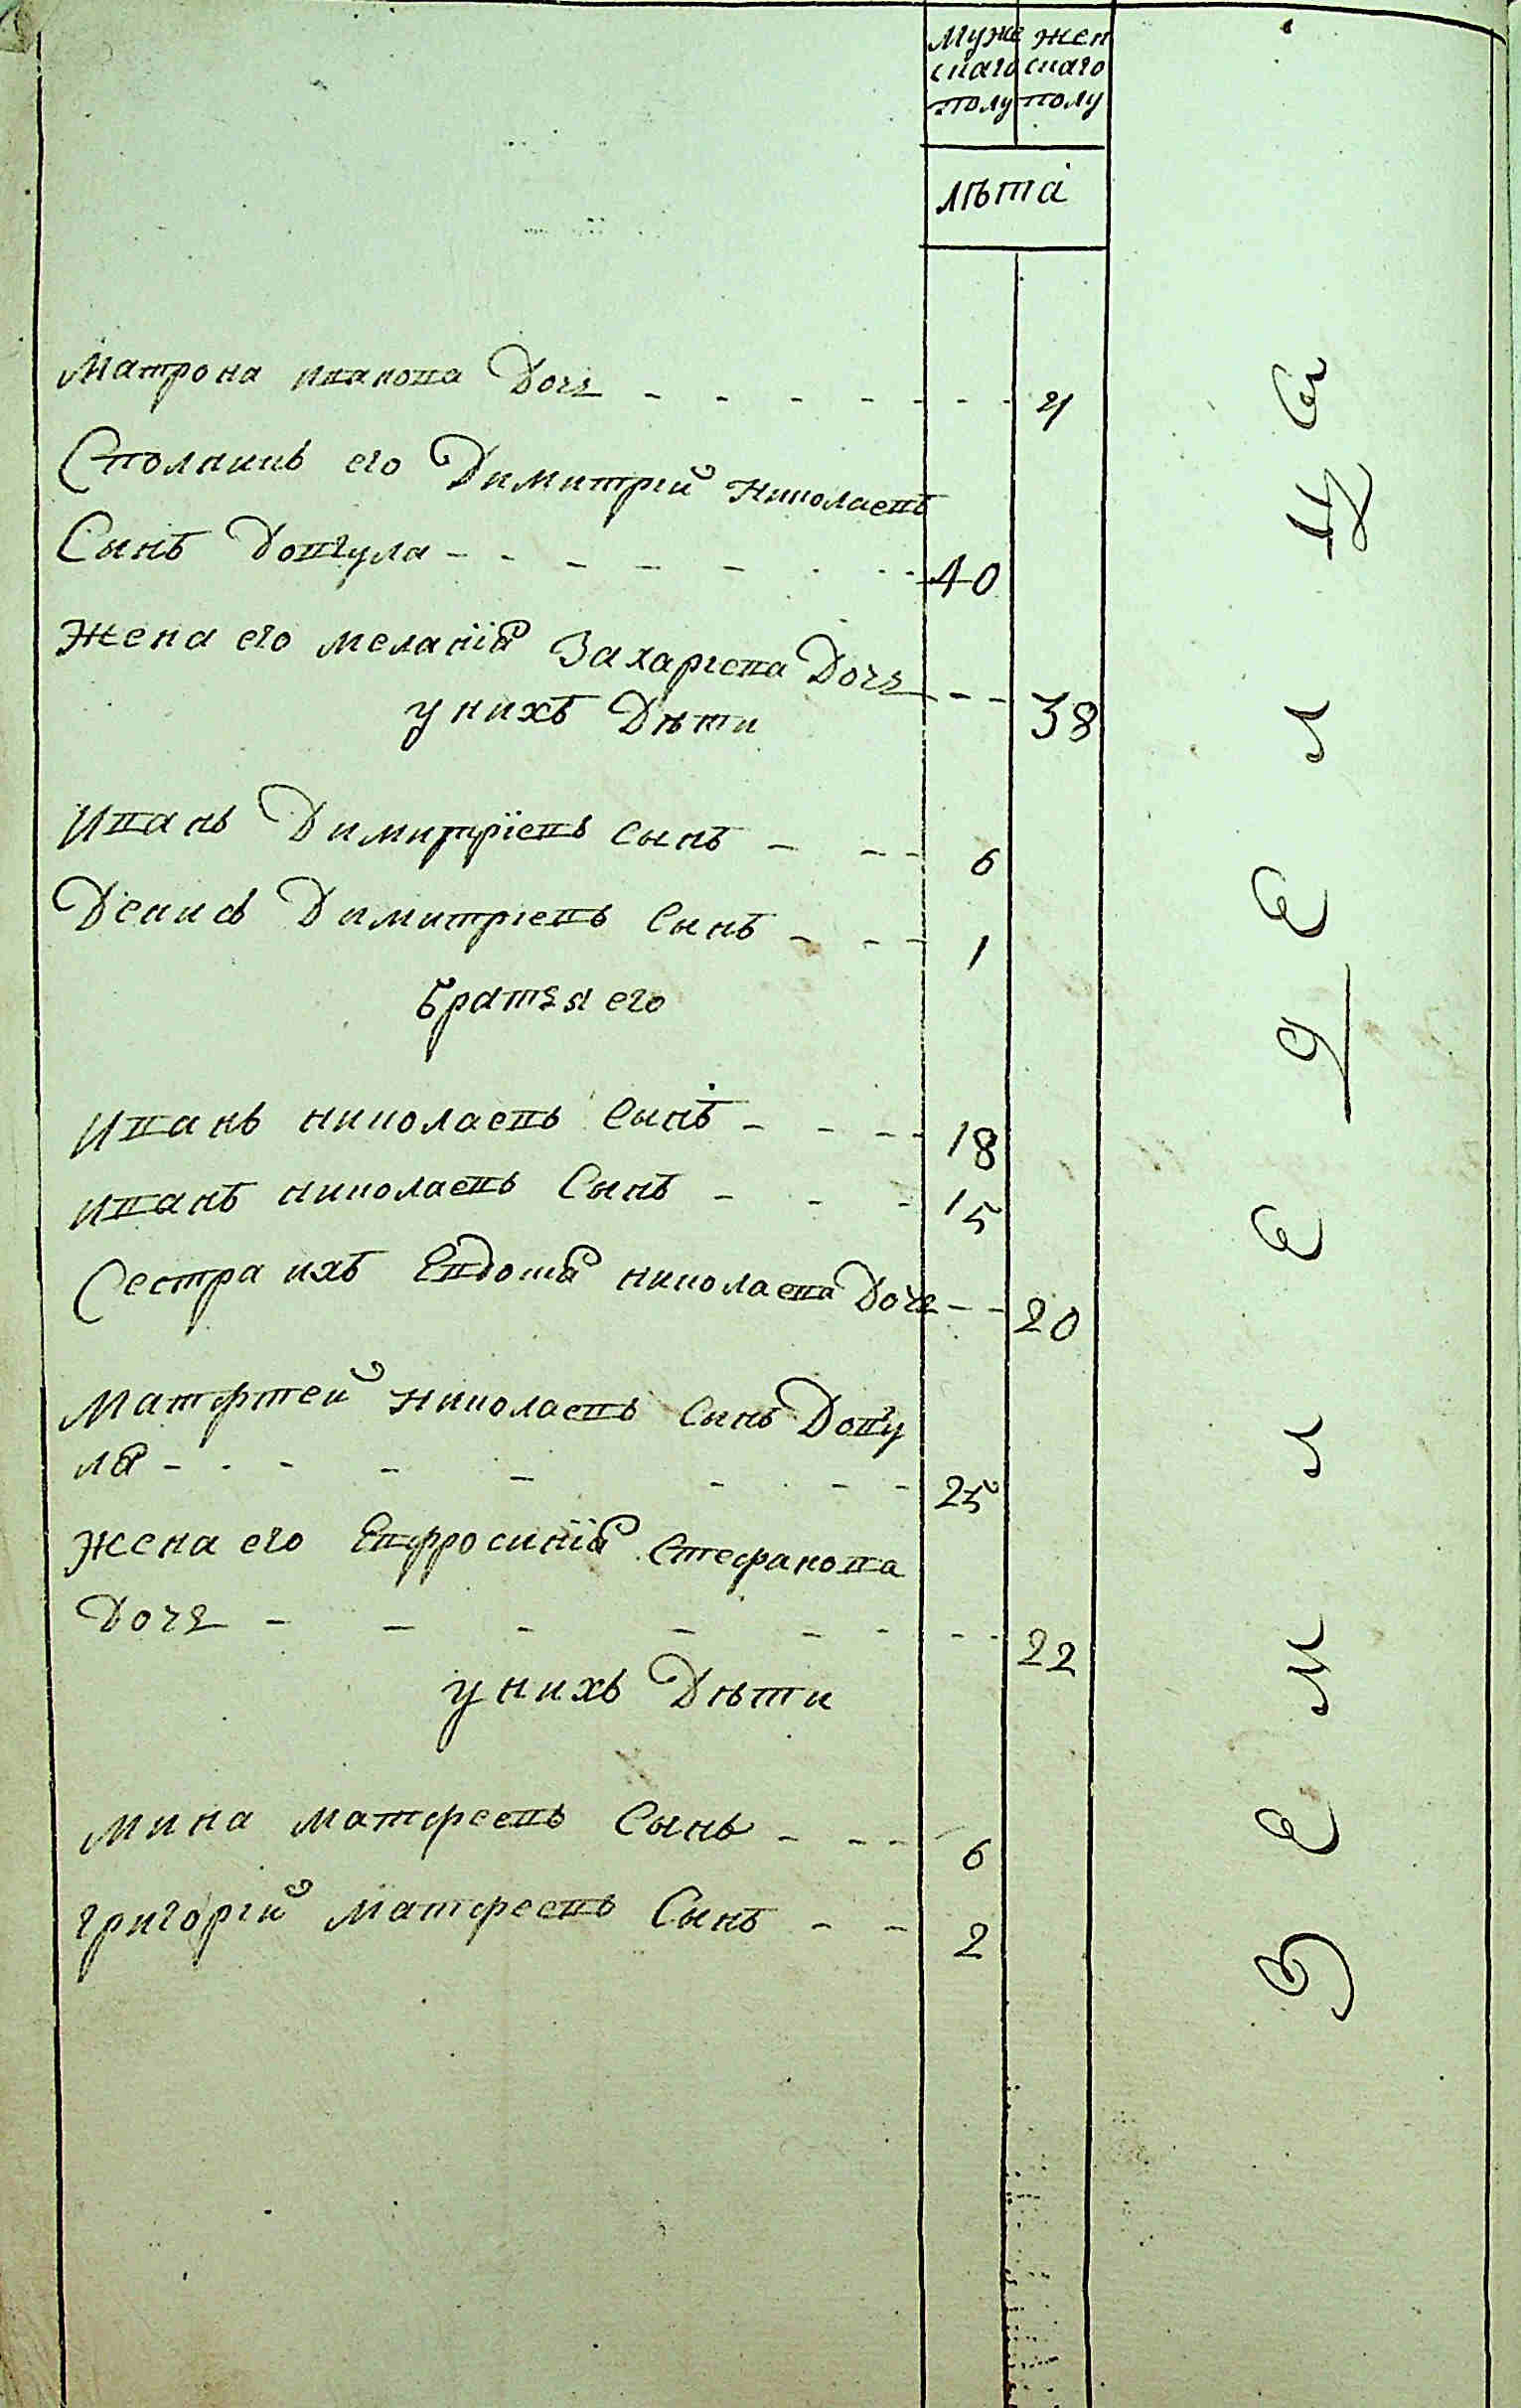 Муже жен
скаго скаго
полу полу
лѣта
Матрона Иванова Дочь - - - - - - - - 4
Столникъ его Димитрий Николаевъ
Сынъ Довгула - - - - - - - 40
Жена его Мелания Захариева Дочь - - 38
у нихъ Дѣти
Иванъ Димитрїевъ сынъ - - - 6
Денисъ Димитриевъ Сынъ - - - 1
братья его
Иванъ Николаевъ Сынъ - - - - 18
Иванъ Николаевъ Сынъ - - - 15
Сестра ихъ Евдокиа Николаева Дочь - - 20
Матфтей Николаевъ Сынъ Довгу
ла - - - - - - - - 25
Жена его Евфросинїа Стефанова
Дочь - - - - - - - - 22
у нихъ Дѣти
Мина Матфеевъ Сынъ - - - 6
Григорий Матфеевъ Сынъ - - 2
Земледелца